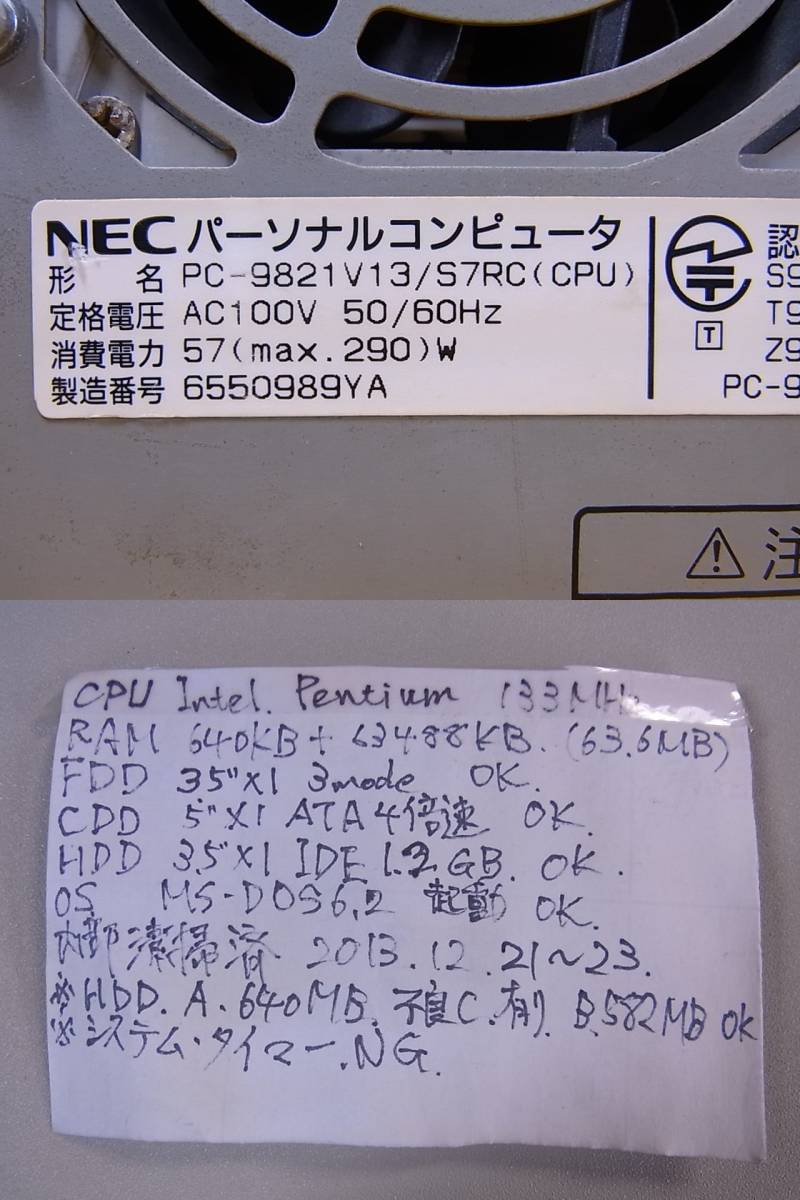 NEC パーソナルコンピュータ
形 名 PC-9821V13/S7RC(CPU)
定格電圧 AC100V 50/60Hz
消費電力 57(max.290)W
製造番号 6550989YA
認
S9
T
T9
Z9
PC-9
注
CPU Intel. Pentium 133MHz
RAM 640KB+63488KB. (63.6MB)
FDD 3.5"×1 3mode OK.
CDD 5"×1 ATA 4倍速 OK.
HDD 3.5"×1 IDE 1.2GB. OK.
OS MS-DOS6.2 起動 OK.
内部清掃済 2013.12.21~23.
※HDD.A.640MB.不良C.有り.B.582MB OK
※システム・タイマー.NG.